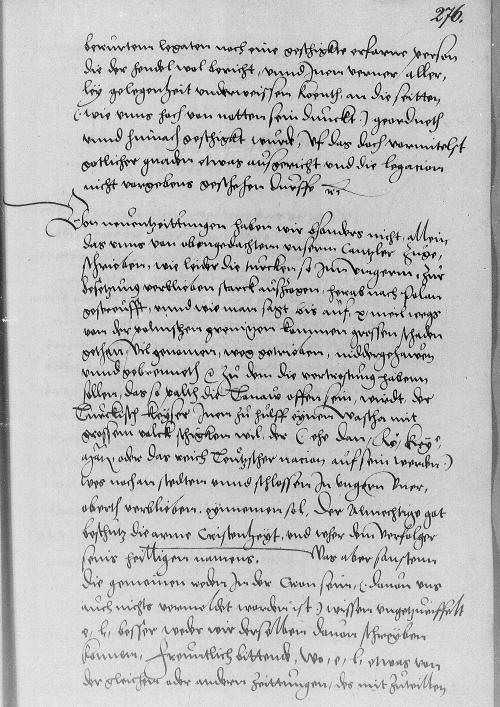 276.
berurtem legaten noch eine geschigkte erfarne person
die der hendel wol bericht, vnnd Jnen verner aller,
ley gelegenheit vnderweissen konth an die seitten
(: wie vnns hoch von notten sein dunckt :) geordneth
vnnd hinnach geschigkt wurde, vf das doch vormittelst
gotlicher gnaden etwas aussgericht vnd die legacion
nicht vorgebens geschehen durffe
Von neuenzeittungen haben wir besonders nicht, allein
das vnns von obengedachtem vnserm Cantzler zuge,
schrieben, wie leider die turcken so Jnn vngern, zur
besetzung verblieben starck ausszogen, herab nach Polan
gestreufft, vnnd wie man sagt bis auf x meil wegs
von der polnischen grenitzen kommen grossen schaden
gethan, vil genomen, weg getrieben, niddergehawen
vnnd gebrenneth Zu dem die vertrostung haben
sollen, das so palth die Tonaw offen sein, wurdt, der
Turckisch Keyser Jnen zu hulff eynen Wascha mit
grossem volck schigken wil, der (: ehe dan Ro. kay.
oder das reich Teutzscher nacion auf sein werden :)
was noch an stedten vnnd schlossen Jn vngern vner,
oberth verblieben, eynnemen sol, Der Almechtige got
beschutz die arme Cristenheyt, vnd wher dem verfolger
seins heilligen namens. Was aber sonstenn
die gemeinen reden Jn der Cron sein, (: dauon vns
auch nichts vermeldet worden ist :) wissen vngezweiffelt
e. l. besser weder wir derselben dauon schreyben
konnen, Freuntlich bittende, Wo e. l. etwas von
der gleichen oder andern zeittungen, des mit zuteillen